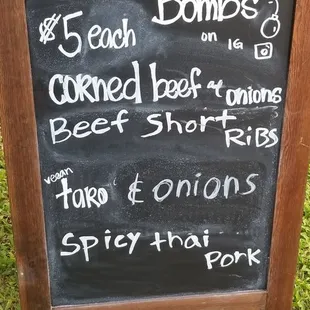 Bombs
$5 each
on IG
corned beef & onions
Beef Short Ribs
vegan
taro & onions
Spicy thai Pork